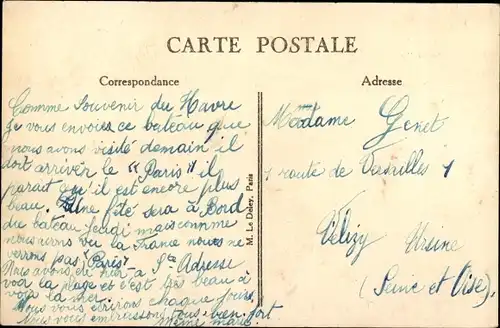 CARTE POSTALE
Correspondance
Comme souvenir du Havre
Je vous envoies ce bateau que
nous avons visité demain il
doit arriver le "Paris" il
parait qu'il est encore plus
beau. Une fête sera à Bord
du bateau jeudi mais comme
nous avons vu la France nous ne
verrons pas "Paris"
Nous avons été hier à Ste Adresse
voir la plage et c'est très beau à
voir la mer.
Nous vous écrirons chaque jours.
Nous vous embrassons tous bien fort
M. Le Deley, Paris
Adresse
Madame Genet
route de
Vélizy Ursine
(Seine et Oise)